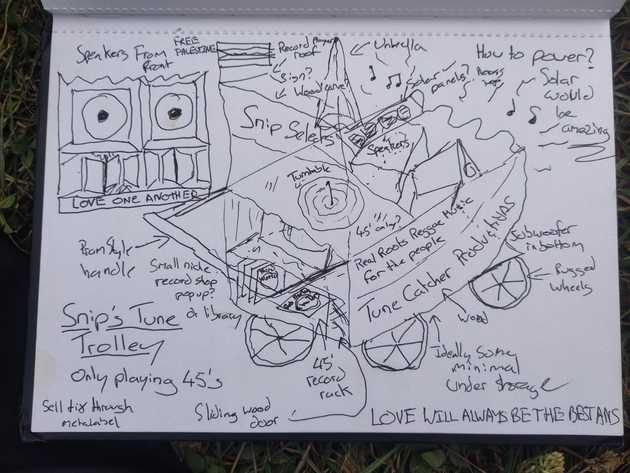 Speakers From
front
FREE
PALESTINE
Record Player
roof
Sign?
Wood carve?
Umbrella
Solar
panels?
How to power?
Solar
would
be
amazing
Snip Selects
Speakers
Turntable
LOVE ONE ANOTHER
45' only?
Real Roots Reggae Music
for the people
Tune Catcher Productions
Subwoofer
in bottom
Pram Style
handle
Small niche
record shop
pop up?
or library
Rugged
wheels
Wood
Snip's Tune
Trolley
Only playing 45's
Ideally some
minimal
under storage
45'
record
rack
Sliding wood
door
Sell tix through
metalabel
LOVE WILL ALWAYS BE THE BEST ANS